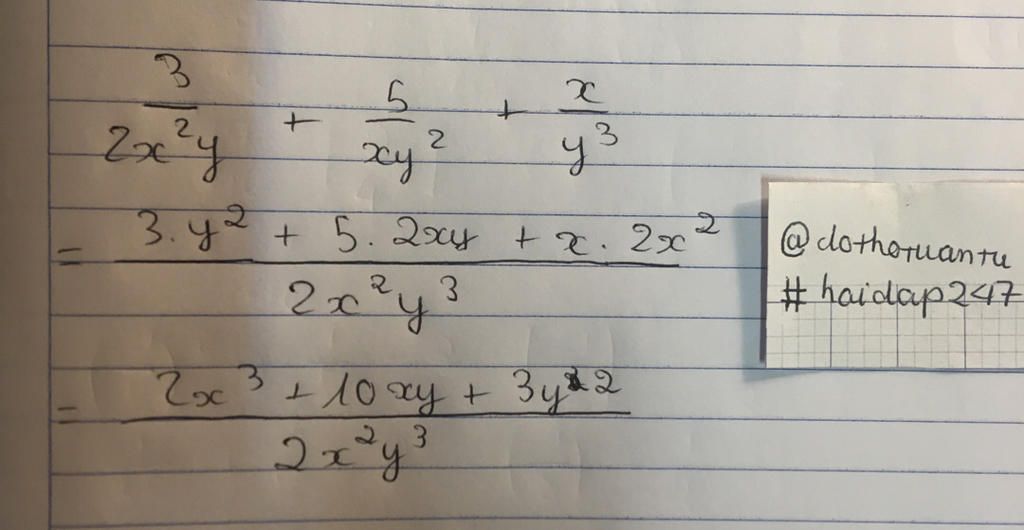 3/2x²y + 5/xy² + x/y³
= 3.y² + 5.2xy + x.2x² / 2x²y³
= 2x³ + 10xy + 3y² / 2x²y³
@dothotuantu
# hoidap247